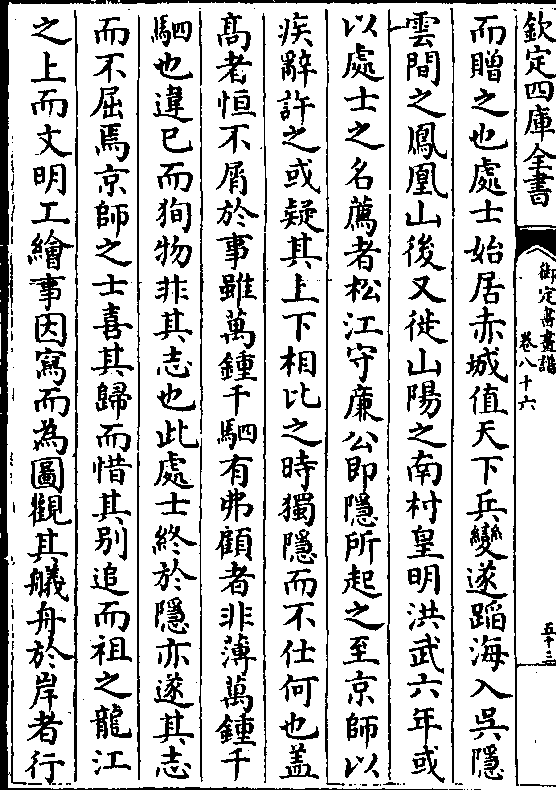 欽定四庫全書
御定書畫譜
卷八十六
五十三
而贈之也處士始居赤城值天下兵變遂蹈海入吳隱
雲間之鳳凰山後又徙山陽之南村皇明洪武六年或
以處士之名薦者松江守廉公即隱所起之至京師以
疾辭許之或疑其上下相比之時獨隱而不仕何也盖
髙老恒不屑於事雖萬鍾千駟有弗顧者非薄萬鍾千
駟也違已而狥物非其志也此處士終於隱亦遂其志
而不屈焉京師之士喜其歸而惜其别追而祖之龍江
之上而文明工繪事因寫而為圖觀其艤舟於岸者行